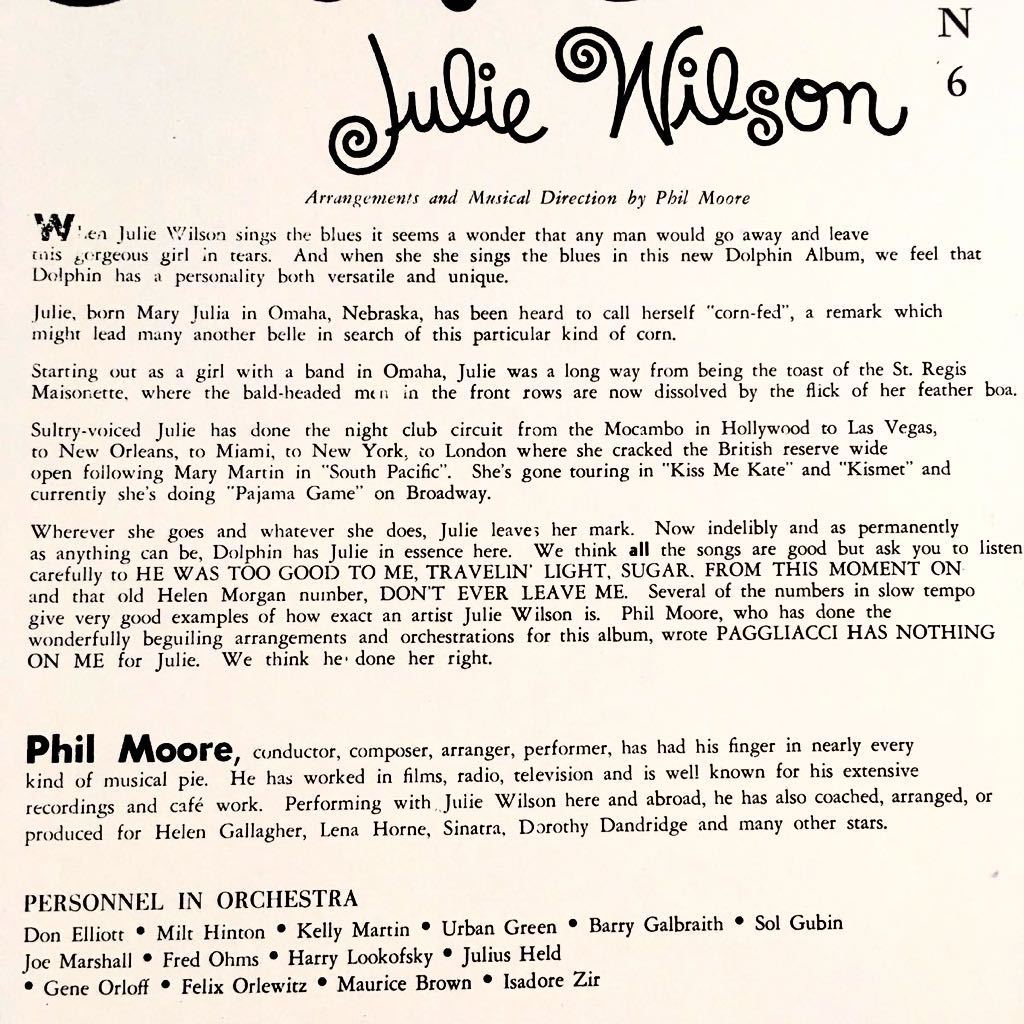 N
6
Julie Wilson
Arrangements and Musical Direction by Phil Moore
When Julie Wilson sings the blues it seems a wonder that any man would go away and leave
this gorgeous girl in tears. And when she she sings the blues in this new Dolphin Album, we feel that
Dolphin has a personality both versatile and unique.
Julie, born Mary Julia in Omaha, Nebraska, has been heard to call herself "corn-fed", a remark which
might lead many another belle in search of this particular kind of corn.
Starting out as a girl with a band in Omaha, Julie was a long way from being the toast of the St. Regis
Maisonette, where the bald-headed men in the front rows are now dissolved by the flick of her feather boa.
Sultry-voiced Julie has done the night club circuit from the Mocambo in Hollywood to Las Vegas,
to New Orleans, to Miami, to New York, to London where she cracked the British reserve wide
open following Mary Martin in "South Pacific". She's gone touring in "Kiss Me Kate" and "Kismet" and
currently she's doing "Pajama Game" on Broadway.
Wherever she goes and whatever she does, Julie leaves her mark. Now indelibly and as permanently
as anything can be, Dolphin has Julie in essence here. We think all the songs are good but ask you to listen
carefully to HE WAS TOO GOOD TO ME, TRAVELIN' LIGHT, SUGAR. FROM THIS MOMENT ON
and that old Helen Morgan number, DON'T EVER LEAVE ME. Several of the numbers in slow tempo
give very good examples of how exact an artist Julie Wilson is. Phil Moore, who has done the
wonderfully beguiling arrangements and orchestrations for this album, wrote PAGGLIACCI HAS NOTHING
ON ME for Julie. We think he done her right.
Phil Moore, conductor, composer, arranger, performer, has had his finger in nearly every
kind of musical pie. He has worked in films, radio, television and is well known for his extensive
recordings and café work. Performing with Julie Wilson here and abroad, he has also coached, arranged, or
produced for Helen Gallagher, Lena Horne, Sinatra, Dorothy Dandridge and many other stars.
PERSONNEL IN ORCHESTRA
Don Elliott • Milt Hinton • Kelly Martin • Urban Green • Barry Galbraith • Sol Gubin
Joe Marshall • Fred Ohms • Harry Lookofsky • Julius Held
• Gene Orloff • Felix Orlewitz • Maurice Brown • Isadore Zir